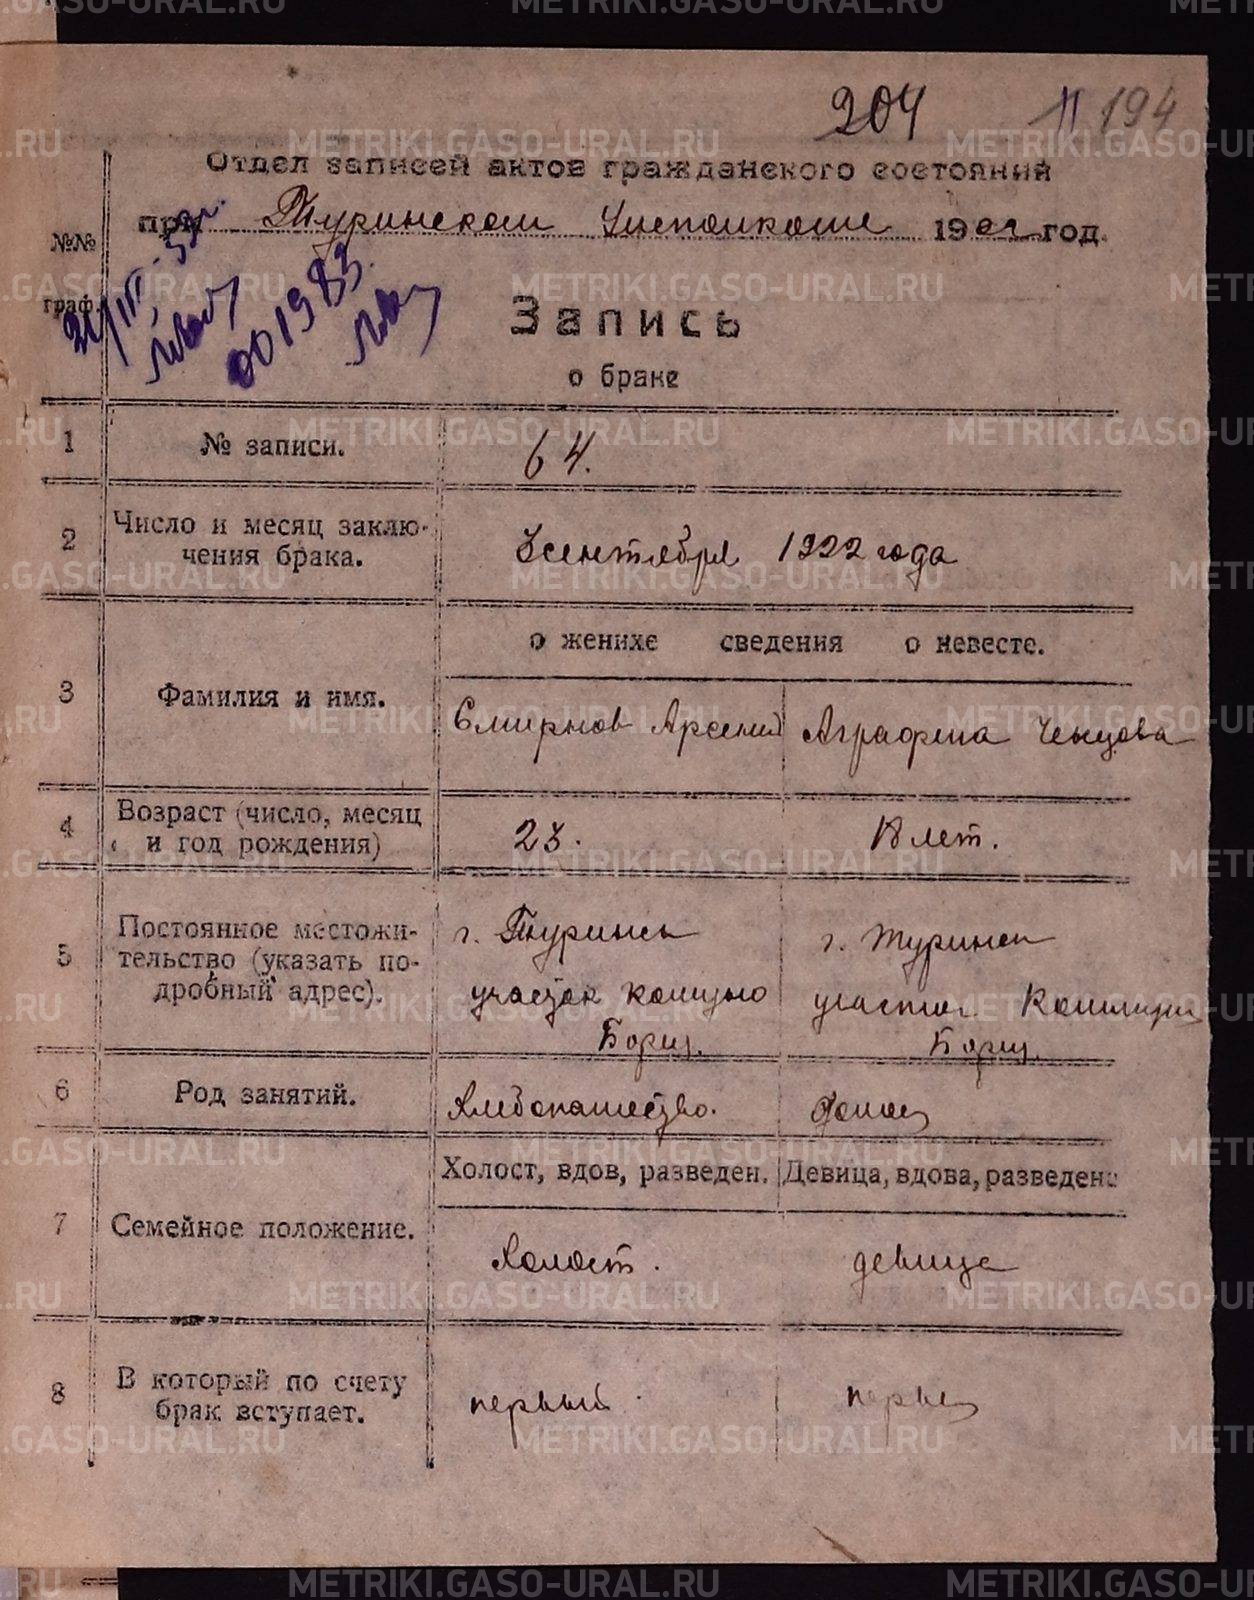 204 11 194
Отдел записей актов гражданского состояний
при Туринском Уисполкоме 1922 год.
№№ граф.
00 1983.
Запись
о браке
1 № записи. 64.
2 Число и месяц заклю-
чения брака.
3 сентября 1922 года
о женихе сведения о невесте.
3 Фамилия и имя.
Смирнов Арсений Аграфена Ченцова
4 Возраст (число, месяц
и год рождения)
23. 18 лет.
5 Постоянное местожи-
тельство (указать по-
дробный адрес).
г. Туринск г. Туринск
участок
Борец. Борец.
6 Род занятий. Хлебопашество.
7 Семейное положение.
Холост, вдов, разведен. Девица, вдова, разведена
Холост. девица
8 В который по счету
брак вступает.
первый первый
METRIKI.GASO-URAL.RU